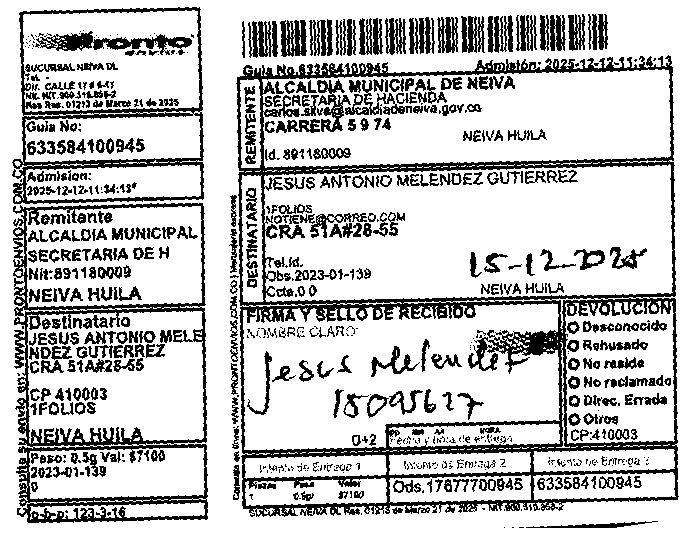 Pronto
SUCURSAL NEIVA DL
Tel. -
Dir. CALLE
Nit. NIT. 900.310.856-2
Res Res. 01213 de Marzo 21 de 2025
Guia No:
633584100945
Admision:
2025-12-12-11:34:13
Remitente
ALCALDIA MUNICIPAL
SECRETARIA DE H
Nit:891180009
NEIVA HUILA
Destinatario
JESUS ANTONIO MELE
NDEZ GUTIERREZ
CRA 51A#28-55
CP 410003
1FOLIOS
NEIVA HUILA
Peso: 0.5g Val: $7100
2023-01-139
0
123-3-16
Consulte su envio en: WWW.PRONTOENVIOS.COM.CO
Guia No.633584100945 Admisión: 2025-12-12-11:34:13
REMITENTE
ALCALDIA MUNICIPAL DE NEIVA
SECRETARIA DE HACIENDA
carlos.silva@alcaldiadeneiva.gov.co
CARRERA 5 9 74
NEIVA HUILA
Id. 891180009
DESTINATARIO
JESUS ANTONIO MELENDEZ GUTIERREZ
1FOLIOS
NOTIENE@CORREO.COM
CRA 51A#28-55
Tel.Id.
Obs.2023-01-139
Ccts.0 0
15-12-2025
NEIVA HUILA
FIRMA Y SELLO DE RECIBIDO
NOMBRE CLARO:
Jesus Melendez
18095627
0+2
Fecha y hora de entrega
DEVOLUCION
Desconocido
Rehusado
No reside
No reclamado
Direc. Errada
Otros
CP:410003
Intento de Entrega 1 Intento de Entrega 2 Intento de Entrega 3
Piezas Peso Valor
1 0.5g $7100
Ods.17677700945 633584100945
SUCURSAL NEIVA DL Res. 01213 de Marzo 21 de 2025 - NIT.900.310.856-2